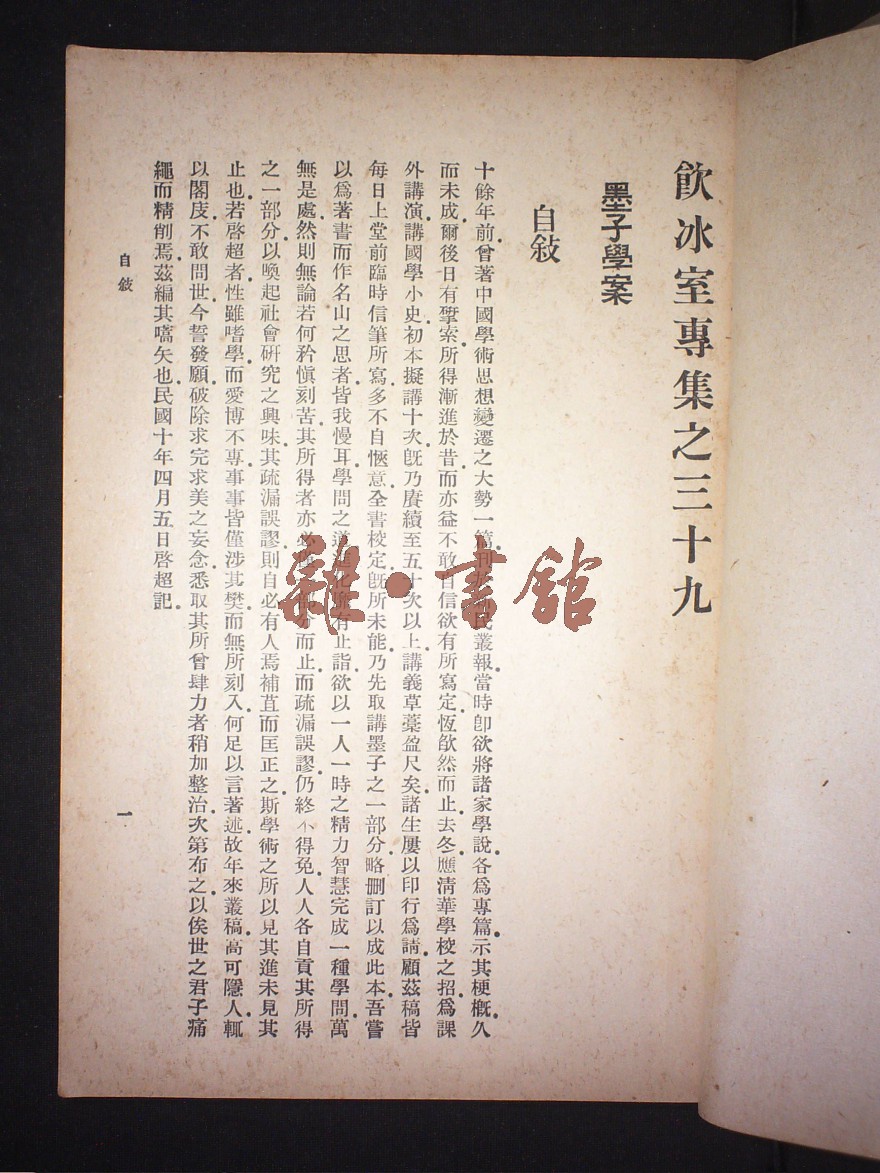 飮冰室專集之三十九
墨子學案
自敍
十餘年前曾著中國學術思想變遷之大勢一篇刊於新民叢報當時卽欲將諸家學說各爲專篇示其梗槪久
而未成爾後日有揅索所得漸進於昔而亦益不敢自信欲有所寫定恆欿然而止去冬應淸華學校之招爲課
外講演講國學小史初本擬講十次旣乃賡續至五十次以上講義草藁盈尺矣諸生屢以印行爲請顧茲稿皆
每日上堂前臨時信筆所寫多不自愜意全書校定旣所未能乃先取講墨子之一部分略刪訂以成此本吾嘗
以爲著書而作名山之思者皆我慢耳學問之道進化靡有止詣欲以一人一時之精力智慧完成一種學問萬
無是處然則無論若何矜愼刻苦其所得者亦必一部分而止而疏漏誤謬仍終不得免人人各自貢其所得
之一部分以喚起社會硏究之興味其疏漏誤謬則自必有人焉補苴而匡正之斯學術之所以見其進未見其
止也若啓超者性雖嗜學而愛博不專事事皆僅涉其樊而無所刻入何足以言著述故年來叢稿高可隱人輒
以閣庋不敢問世今誓發願破除求完求美之妄念悉取其所曾肆力者稍加整治次第布之以俟世之君子痛
繩而精削焉茲編其嚆矢也民國十年四月五日啓超記
自敍
一
雜·書館